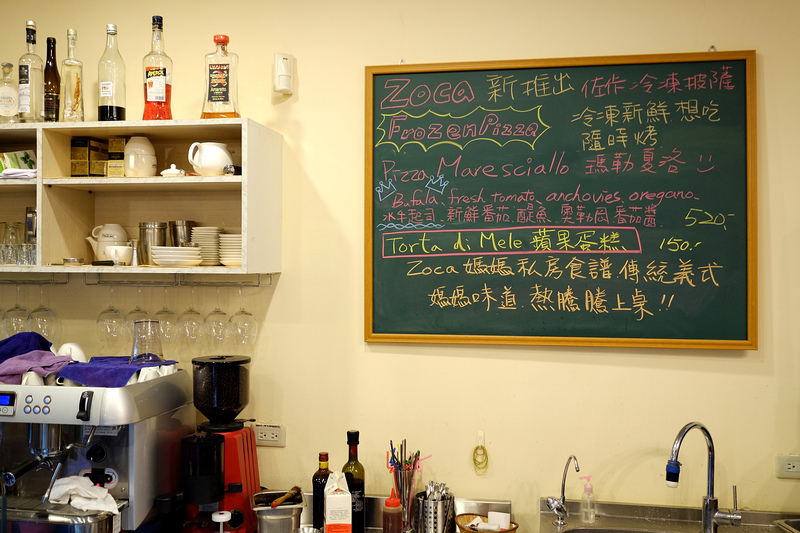 Zoca 新推出 佐作冷凍披薩
Frozen Pizza 冷凍新鮮想吃
隨時烤.
Pizza Maresciallo 瑪勒夏洛
Bufala. fresh tomato. anchovies. oregano.
水牛起司. 新鮮番茄. 鯷魚. 奧勒岡. 番茄醬. 520.-
Torta di Mele 蘋果蛋糕. 150.-
Zoca 媽媽私房食譜傳統義式
媽媽味道. 熱騰騰上桌!!